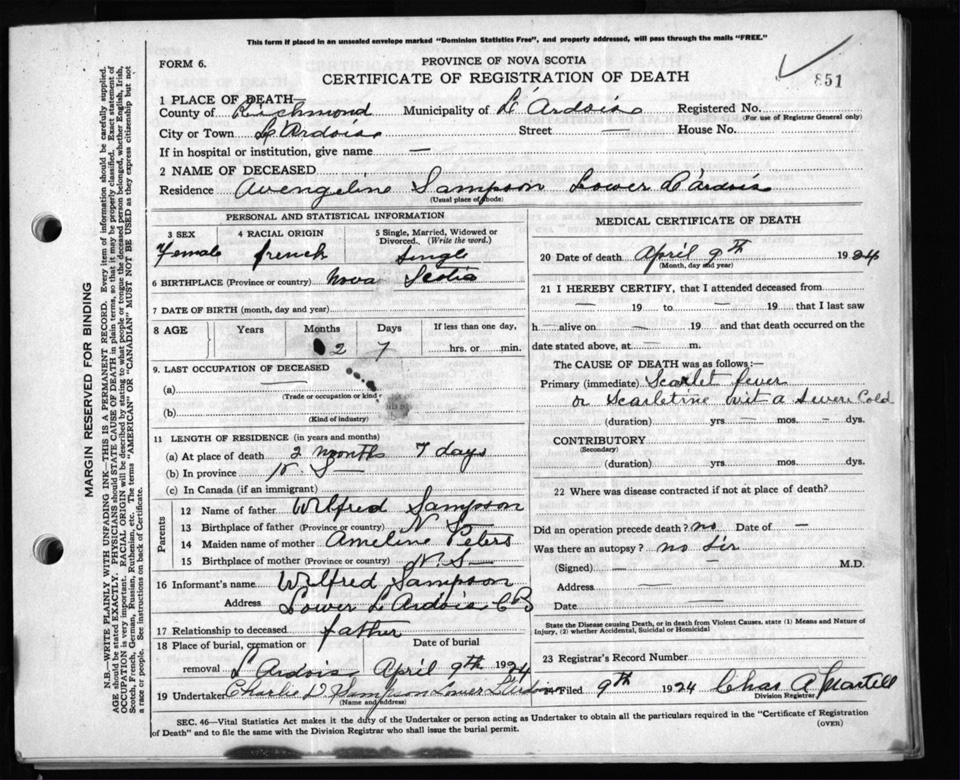 This form if placed in an unsealed envelope marked "Dominion Statistics Free", and properly addressed, will pass through the mails "FREE."
FORM 6.
PROVINCE OF NOVA SCOTIA
CERTIFICATE OF REGISTRATION OF DEATH
851
1 PLACE OF DEATH
County of Richmond Municipality of L'Ardoise Registered No.
(For use of Registrar General only)
City or Town L'Ardoise Street — House No.
If in hospital or institution, give name —
2 NAME OF DECEASED
Residence Avengeline Sampson Lower L'ardois
(Usual place of abode)
PERSONAL AND STATISTICAL INFORMATION
3 SEX 4 RACIAL ORIGIN 5 Single, Married, Widowed or Divorced. (Write the word.)
Female french Single
6 BIRTHPLACE (Province or country) Nova Scotia
7 DATE OF BIRTH (month, day and year)
8 AGE Years Months Days If less than one day,
2 7 hrs. or min.
9. LAST OCCUPATION OF DECEASED
(a) —
(Trade or occupation or kind
(b)
(Kind of industry)
11 LENGTH OF RESIDENCE (in years and months)
(a) At place of death 2 moonths 7 days
(b) In province N S —
(c) In Canada (if an immigrant)
Parents
12 Name of father Wilfred Sampson
13 Birthplace of father (Province or country) N S —
14 Maiden name of mother Ameline Peters
15 Birthplace of mother (Province or country) N. S —
16 Informant's name Wilfred Sampson
Address Lower L'Ardois C B
17 Relationship to deceased father
18 Place of burial, cremation or removal Date of burial
L'Ardois April 9th 1924
19 Undertaker Charlie D Sampson Lower L'Ardois
(Name and address)
MEDICAL CERTIFICATE OF DEATH
20 Date of death April 9th 1924
(Month, day and year)
21 I HEREBY CERTIFY, that I attended deceased from
— 19 to — 19 that I last saw
h alive on — 19 and that death occurred on the
date stated above, at — m.
The CAUSE OF DEATH was as follows:—
Primary (immediate) Scarlet fever
or Scarletine wit a severe Cold
(duration) yrs — mos. — dys.
CONTRIBUTORY
(Secondary)
(duration) yrs. mos. dys.
22 Where was disease contracted if not at place of death?
Did an operation precede death? no Date of —
Was there an autopsy? no Sir
(Signed) — — M.D.
Address —
Date —
State the Disease causing Death, or in death from Violent Causes, state (1) Means and Nature of
Injury, (2) whether Accidental, Suicidal or Homicidal
23 Registrar's Record Number
Filed 9th 1924 Chas A Martell
Division Registrar
SEC. 46—Vital Statistics Act makes it the duty of the Undertaker or person acting as Undertaker to obtain all the particulars required in the "Certificate of Registration
of Death" and to file the same with the Division Registrar who shall issue the burial permit.
(OVER)
MARGIN RESERVED FOR BINDING
N.B.—WRITE PLAINLY WITH UNFADING INK—THIS IS A PERMANENT RECORD. Every item of information should be carefully supplied.
AGE should be stated EXACTLY. PHYSICIANS should STATE CAUSE OF DEATH in plain terms, so that it may be properly classified. Exact statement of
OCCUPATION is very important. RACIAL ORIGIN will be described by stating to what people or tongue the deceased person belonged, whether English, Irish,
Scotch, French, German, Russian, Ruthenian, etc. The terms "AMERICAN" OR "CANADIAN" MUST NOT BE USED as they express citizenship but not
a race or people. See instructions on back of Certificate.